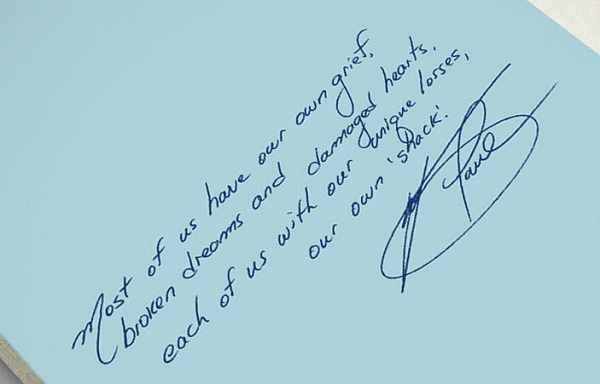 Most of us have our own grief,
broken dreams and damaged hearts,
each of us with our unique losses,
our own 'shack'.
Paul